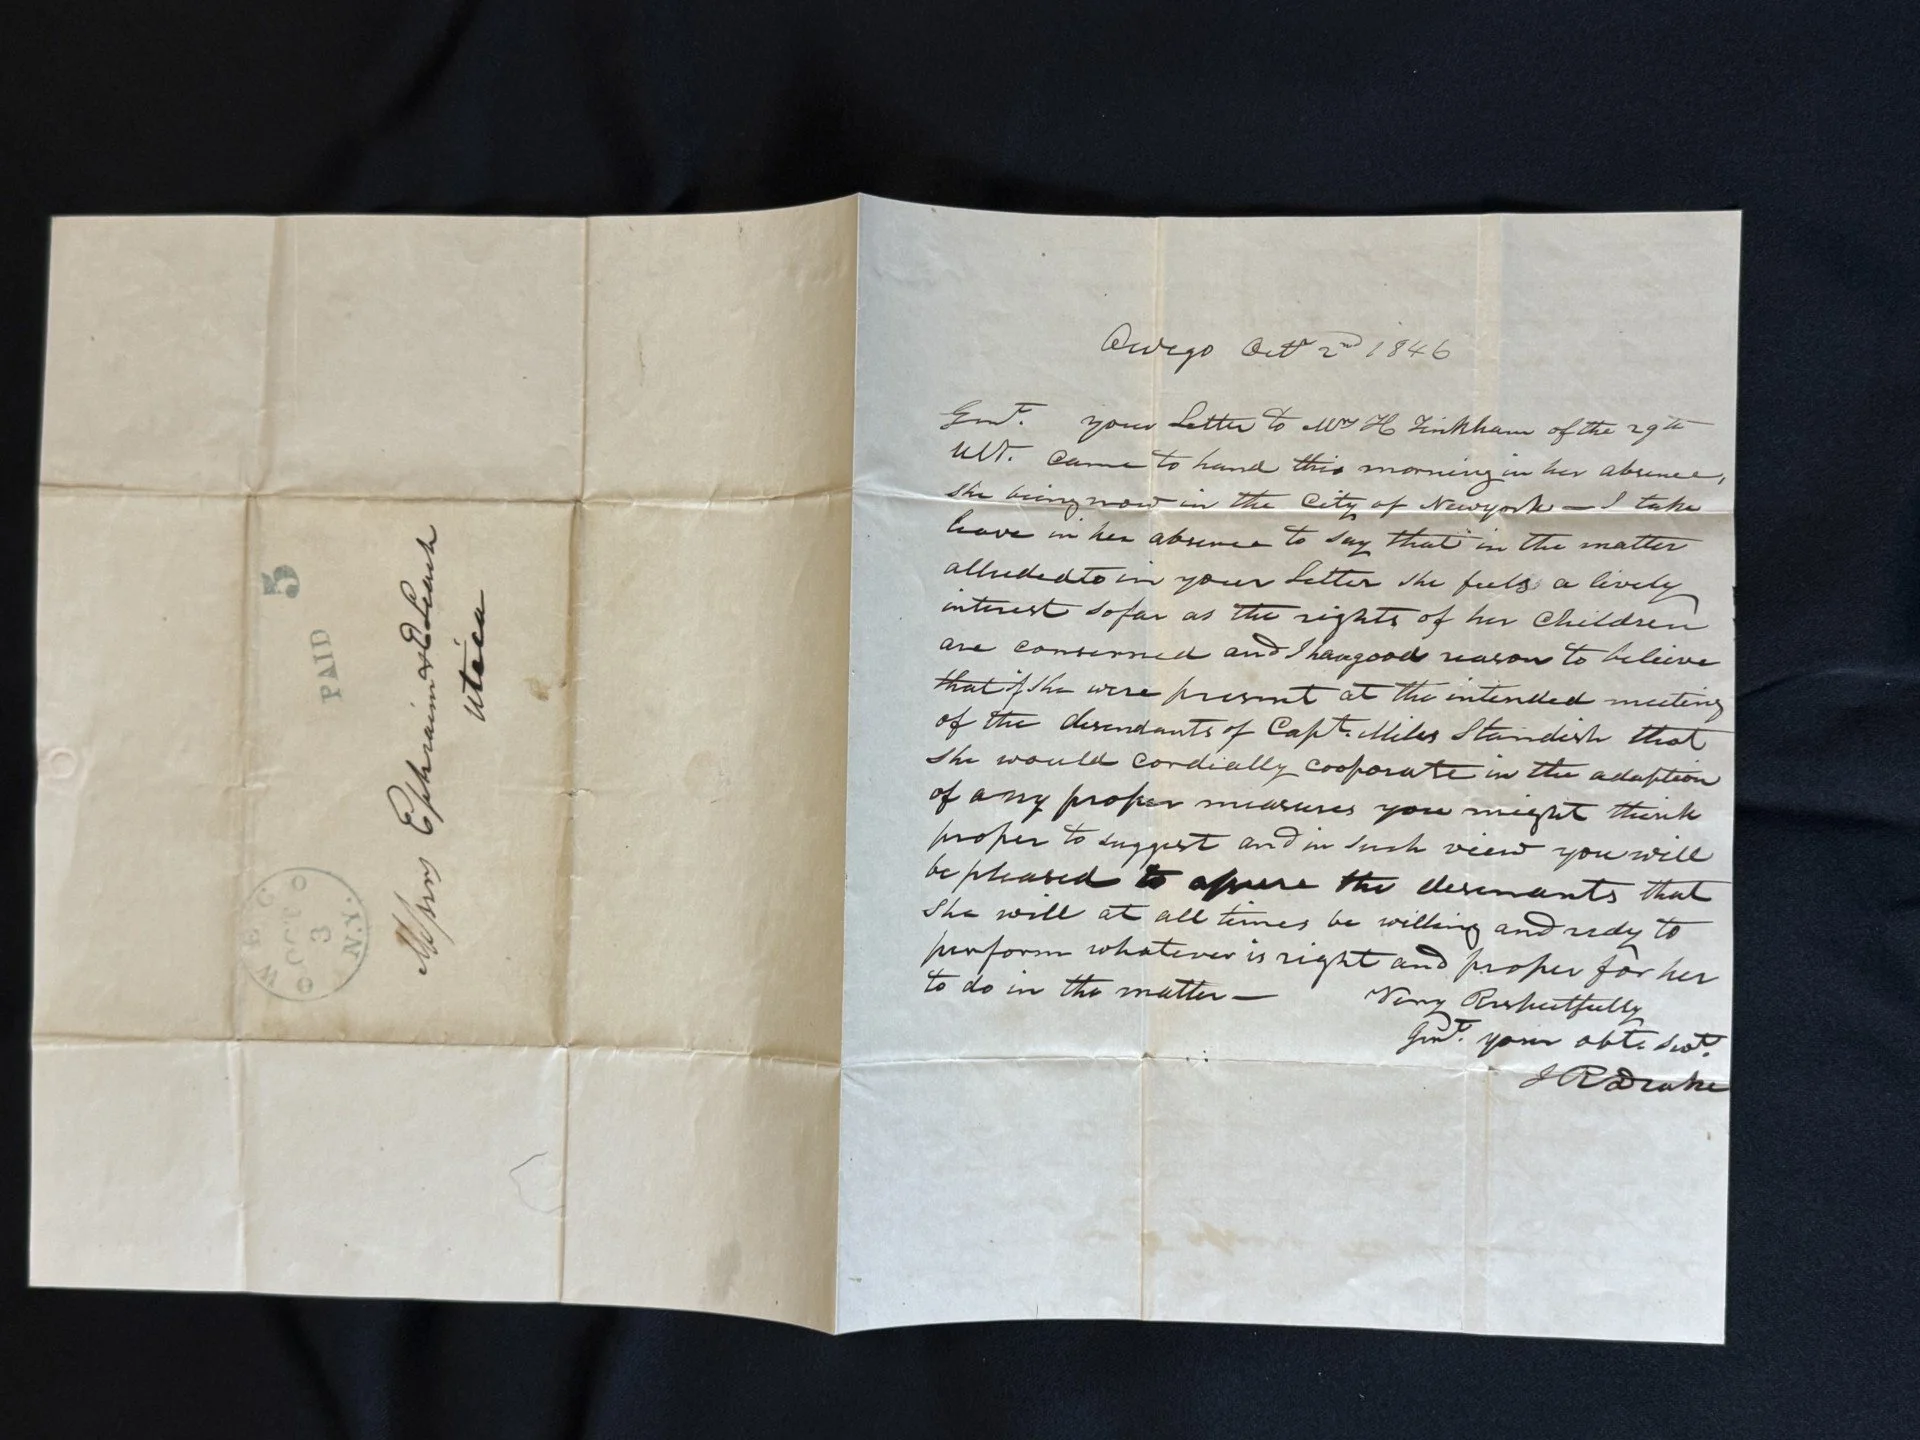 5
PAID
OWEGO
OCT
3
N.Y.
Messrs Ephraim & E Leach
Utica
Owego Octr 2nd 1846
Gent. your Letter to Mrs H Pinkham of the 29th
Ult. came to hand this morning in her absence,
she being now in the City of Newyork — I take
leave in her absence to say that in the matter
alluded to in your Letter she feels a lively
interest so far as the rights of her Children
are conserned and I hav good reason to believe
that if she were present at the intended meeting
of the desendants of Capt. Miles Standish that
she would cordially cooporate in the adaption
of any proper measures you might think
proper to suggest and in such view you will
be pleased to assure the desenants that
she will at all times be willing and redy to
perform whatever is right and proper for her
to do in the matter — Very Respectfully
Gent. your obt. Svt.
J R Drake